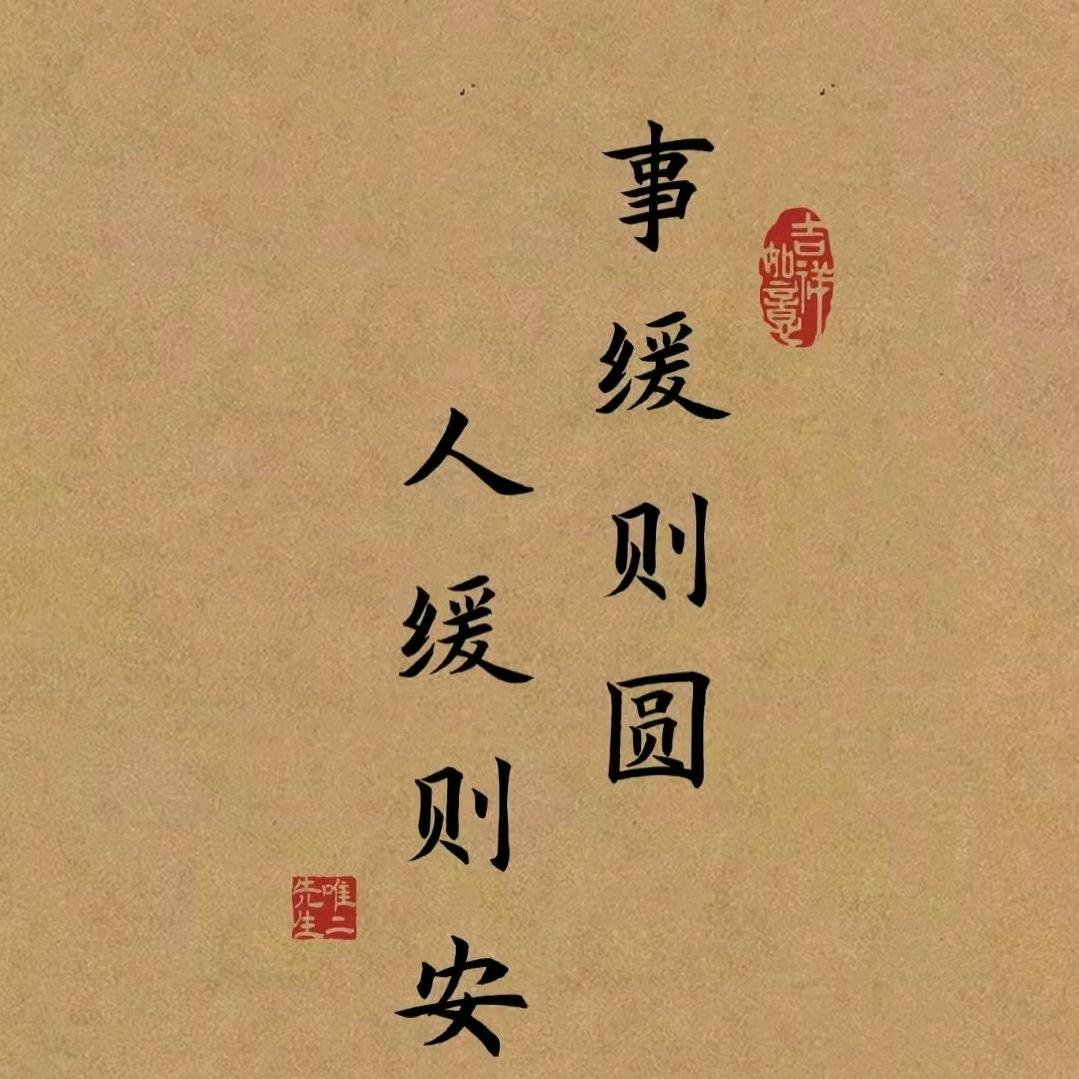 事缓则圆
人缓则安
吉祥如意
唯二先生